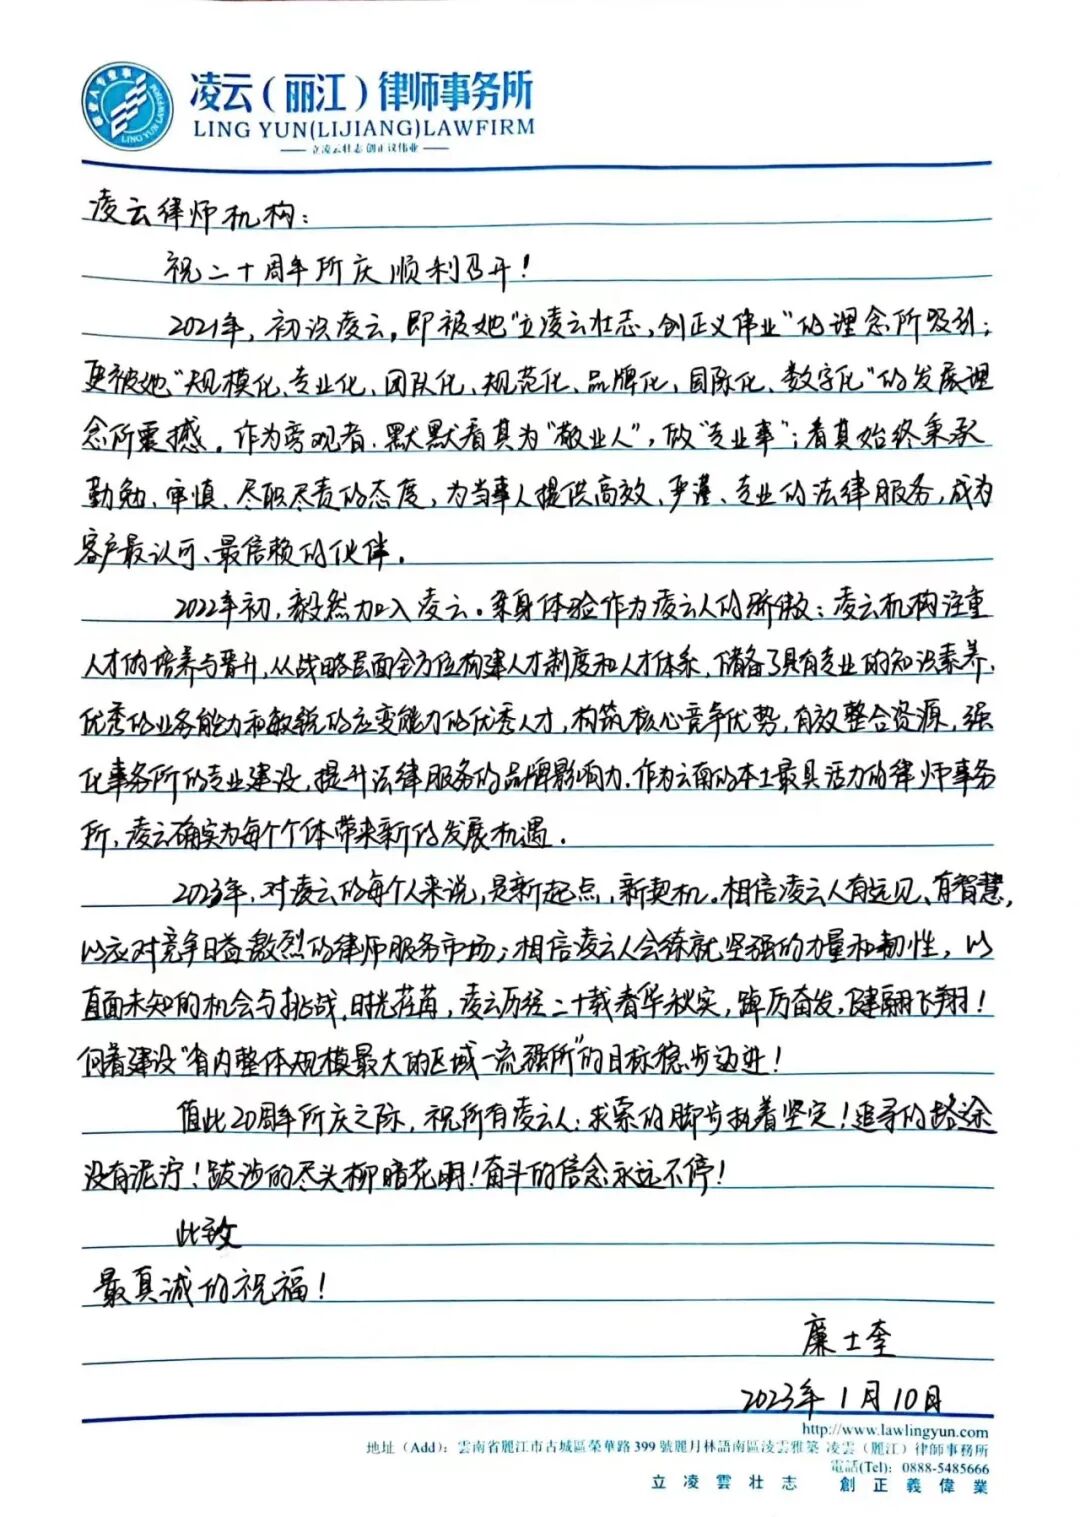 凌云（丽江）律师事务所
LING YUN(LIJIANG)LAWFIRM
立凌云壮志 创正议伟业
LING YUN LAWFIRM
凌云律师机构：
祝二十周年所庆顺利召开！
2021年，初识凌云，即被她“立凌云壮志，创正义伟业”的理念所吸引；
更被她“规模化、专业化、团队化、规范化、品牌化、国际化、数字化”的发展理
念所震撼。作为旁观者，默默看其为“敬业人”，做“专业事”；看其始终秉承
勤勉、审慎、尽职尽责的态度，为当事人提供高效、严谨、专业的法律服务，成为
客户最认可、最信赖的伙伴。
2022年初，毅然加入凌云。亲身体验作为凌云人的骄傲：凌云机构注重
人才的培养与晋升，从战略层面全方位构建人才制度和人才体系，储备了具有专业的知识素养、
优秀的业务能力和敏锐的应变能力的优秀人才，构筑核心竞争优势，有效整合资源，强
化事务所的专业建设，提升法律服务的品牌影响力。作为云南的本土最具活力的律师事务
所，凌云确实为每个个体带来新的发展机遇。
2023年，对凌云的每个人来说，是新起点，新契机。相信凌云人有远见、有智慧，
以应对竞争日益激烈的律师服务市场；相信凌云人会练就坚强的力量和韧性，以
直面未知的机会与挑战。时光荏苒，凌云历经二十载春华秋实，踔厉奋发，健翮飞翔！
向着建设“省内整体规模最大的区域一流强所”的目标稳步迈进！
值此20周年所庆之际，祝所有凌云人：求索的脚步执着坚定！追寻的路途
没有泥泞！跋涉的尽头柳暗花明！奋斗的信念永远不停！
此致
最真诚的祝福！
廉士奎
2023年1月10日
http://www.lawlingyun.com
地址（Add）：雲南省麗江市古城區榮華路399號麗月林語南區淩雲雅築 凌雲（麗江）律師事務所
電話(Tel)：0888-5485666
立凌雲壮志 創正義偉業